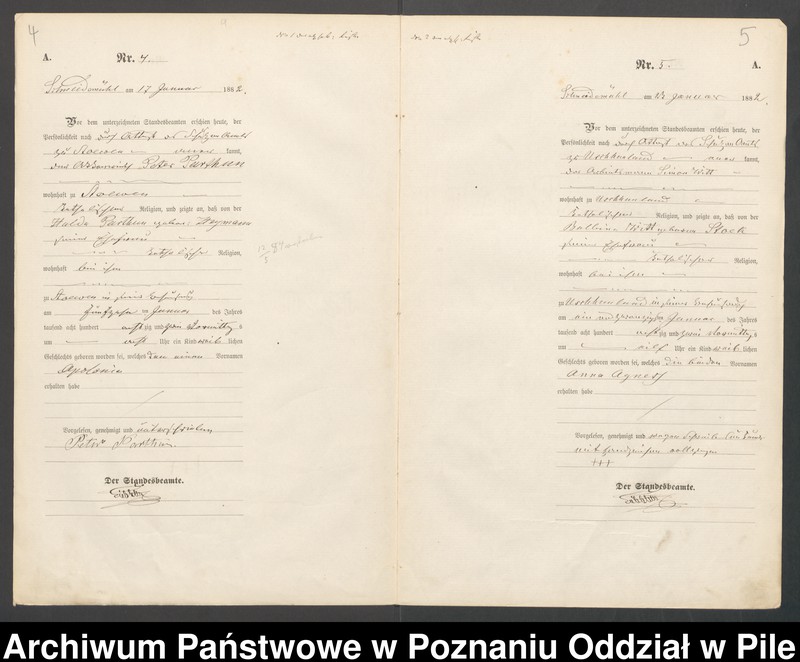 4
A.
Nr. 4.
Schneidemühl am 17 Januar 1882.
Vor dem unterzeichneten Standesbeamten erschien heute, der
Persönlichkeit nach durch Attest des Schulzen Amts
zu Stoewen kannt,
Peter Parthun
wohnhaft zu Stoewen
katholischer Religion, und zeigte an, daß von der
Parthun geborene Weymann
seine Ehefrau
katholischer Religion,
wohnhaft bei ihm
zu Stoewen in seiner Behausung
am fünfzehn ten Januar des Jahres
tausend acht hundert achtzig und zwei Vormittags
um acht Uhr ein Kind weib lichen
Geschlechts geboren worden sei, welches den einen Vornamen
Apolonia
erhalten habe
Vorgelesen, genehmigt und unterschrieben
Peter Parthun
Der Standesbeamte.
5
Nr. 5.
A.
Schneidemühl am Januar 1882.
Vor dem unterzeichneten Standesbeamten erschien heute, der
Persönlichkeit nach durch Attest des Schulzen Amts
zu Uschhauland kannt,
der Simon Witt
wohnhaft zu Uschhauland
katholischer Religion, und zeigte an, daß von der
Balbina Witt geborene Stock
seine Ehefrau
katholischer Religion,
wohnhaft bei ihm
zu Uschhauland in seiner Behausung
am ein und zwanzigsten Januar des Jahres
tausend acht hundert achtzig und zwei Vormittags
um elf Uhr ein Kind weib lichen
Geschlechts geboren worden sei, welches die beiden Vornamen
Anna Agnes
erhalten habe
Vorgelesen, genehmigt und wegen
mit Handzeichen vollzogen
+++
Der Standesbeamte.
Archiwum Państwowe w Poznaniu Oddział w Pile